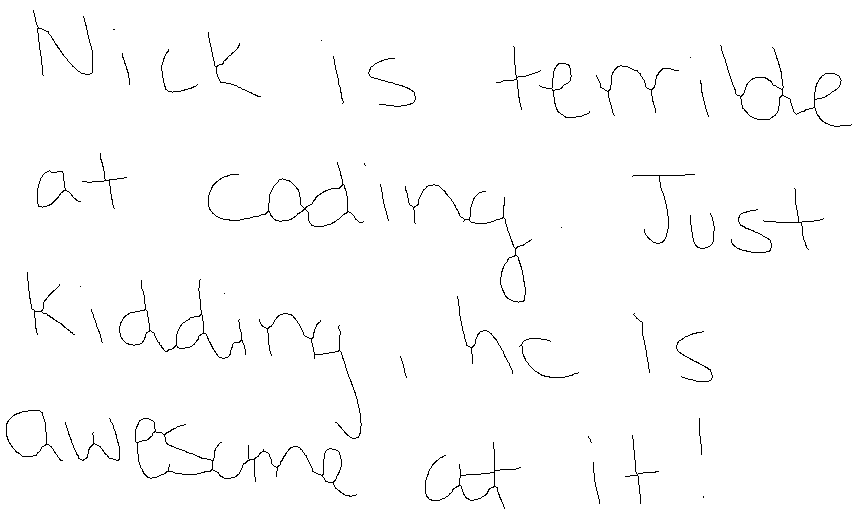 Nick is terrible
at coding. Just
kidding, he is
awesome at it!